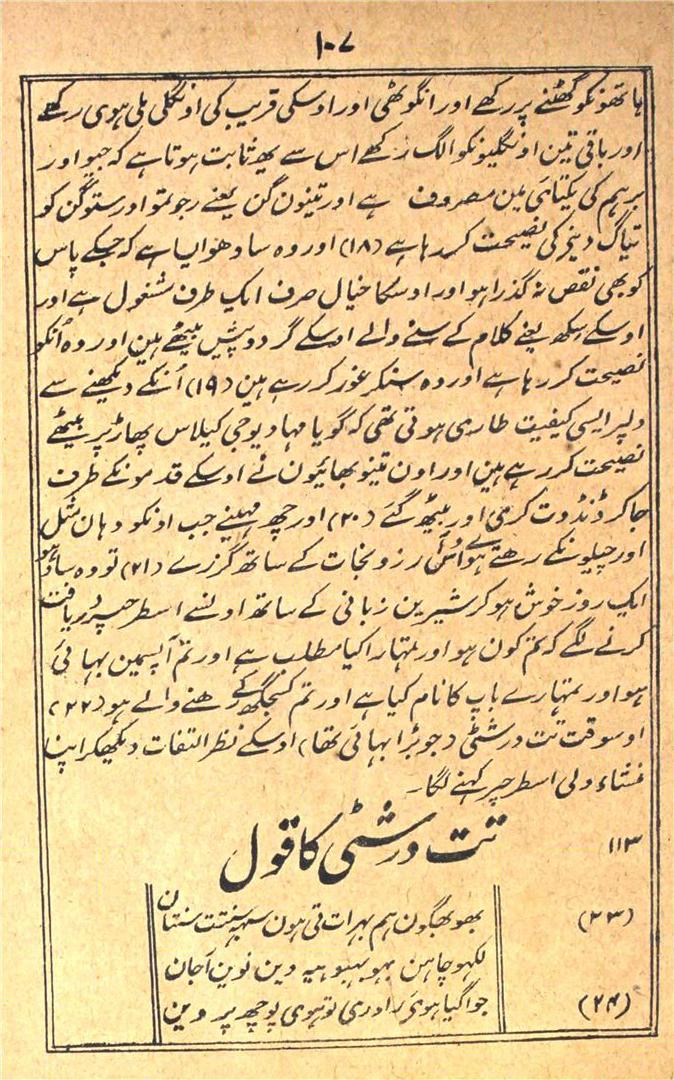 ۱۰۷
ہاتھونکو گھٹنے پر رکھے اور انگوٹھی اور اوسکی قریب کی اونگلی ملی ہوی رکھے
اور باقی تین اونگلیونکو الگ رکھے اس سے یھ ثابت ہوتا ہے کہ جیو اور
برہم کی یکتائی مین مصروف ہے اور تینون گن یعنے رجو تمو اور ستوگن کو
تیاگ دینے کی نصیحت کر رہا ہے (۱۸) اور وہ سادھو ایسا ہے کہ جسکے پاس
کوبھی نقص نہ گذرا ہو اور اوسکا خیال صرف ایک طرف مشغول ہے اور
اوسکے سکھ یعنے کلام کے سننے والے اوسکے گردوپیش بیٹھے ہین اور وہ اُنکو
نصیحت کر رہا ہے اور وہ سنکر غور کر رہے ہین (۱۹) اُنکے دیکھنے سے
دلپر ایسی کیفیت طاری ہوتی تھی کہ گویا مہادیوجی کیلاس پھاڑ پر بیٹھے
نصیحت کر رہے ہین اور اون تینو بھائیون نے اوسکے قدمونکے طرف
جاکر ڈنڈوت کری اور بیٹھ گئے (۲۰) اور چھ مہینے جب اونکو وہان مثل
اور چیلونکے رھتے ہوئے اُس رزو نجات کے ساتھ گزرے (۲۱) تو وہ سادہو
ایک روز خوش ہوکر شیرین زبانی کے ساتھ اونسے اسطرحپر دریافت
کرنے لگے کہ تم کون ہو اور تمہارا کیا مطلب ہے اور تم آپسمین بہائی
ہو اور تمہارے باپ کا نام کیا ہے اور تم کسجگھ کے رھنے والے ہو (۲۲)
اوسوقت تت درشٹی (جو بڑا بہائی تھا) اوسکے نظر التفات دیکھکر اپنا
منشاء دلی اسطرحپر کہنے لگا۔
۱۱۳ تت درشٹی کا قول
(۲۳) بھو بھگون ہم بہرات تی ہون سہہ سنتت سنتان
لکھو چاہن بہو بہیو ہیہ دین نوین اجان
(۲۴) جو اگیا ہوی راوری تو ہوی پوچھ پر وین